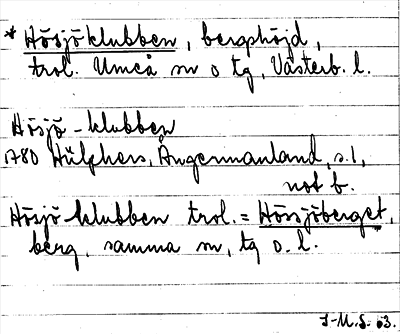 * Hösjöklubben, bergshöjd,
trol. Umeå sn o tg, Västerb. l.
Hösjö-klubben
1780 Hülphers, Ångermanland, s. 1,
not b.
Hösjö-klubben trol. = Hössjöberget,
berg, samma sn, tg o. l.
I-M.S. 63.